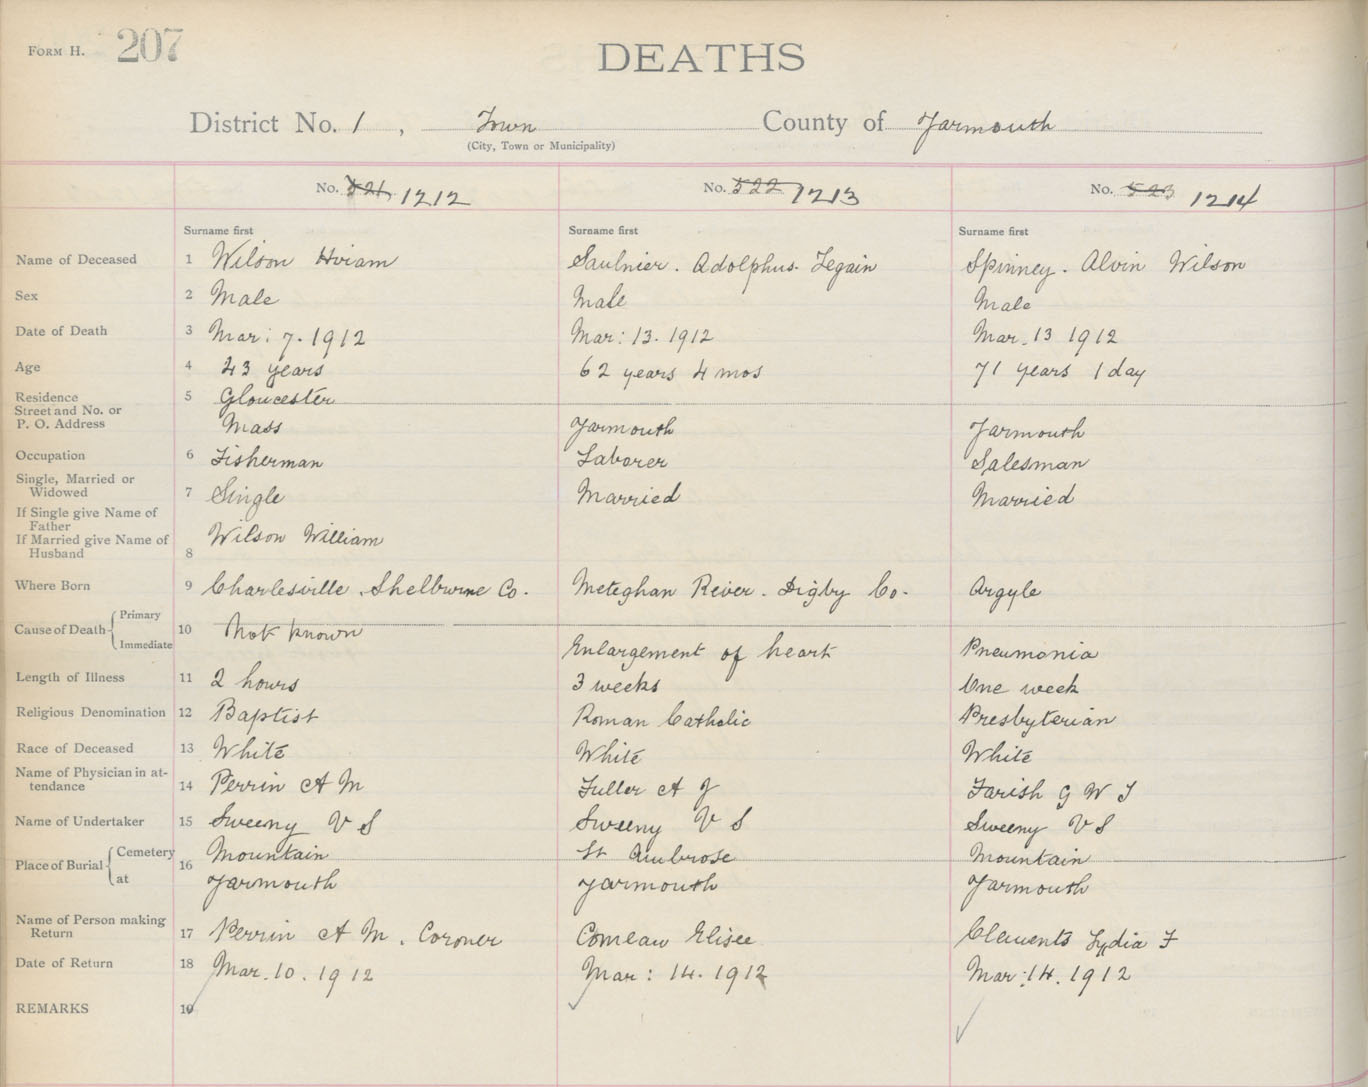 FORM H. 207
DEATHS
District No. 1, Town County of Yarmouth
(City, Town or Municipality)
No. 521 1212 No. 522 1213 No. 523 1214
Surname first Surname first Surname first
Name of Deceased 1 Wilson Hiram Saulnier. Adolphus. Spinney. Alvin Wilson
Sex 2 Male Male Male
Date of Death 3 Mar: 7. 1912 Mar: 13. 1912 Mar. 13 1912
Age 4 43 years 62 years 4 mos 71 years 1 day
Residence 5 Gloucester
Street and No. or
P. O. Address Mass Yarmouth Yarmouth
Occupation 6 Fisherman Laborer Salesman
Single, Married or
Widowed 7 Single Married Married
If Single give Name of
Father
If Married give Name of Wilson William
Husband 8
Where Born 9 Charlesville, Shelburne Co. Meteghan River. Digby Co. Argyle
Cause of Death Primary
10 Not known
Immediate Enlargement of heart Pneumonia
Length of Illness 11 2 hours 3 weeks One week
Religious Denomination 12 Baptist Roman Catholic Presbyterian
Race of Deceased 13 White White White
Name of Physician in at-
tendance 14 Perrin A M Fuller A J Farish G W T
Name of Undertaker 15 Sweeny V S Sweeny V S Sweeny V S
Place of Burial Cemetery 16 Mountain St Ambrose Mountain
at Yarmouth Yarmouth Yarmouth
Name of Person making
Return 17 Perrin A M. Coroner Comeau Elisee Clements Lydia F
Date of Return 18 Mar. 10. 1912 Mar: 14. 1912 Mar: 14. 1912
REMARKS 19